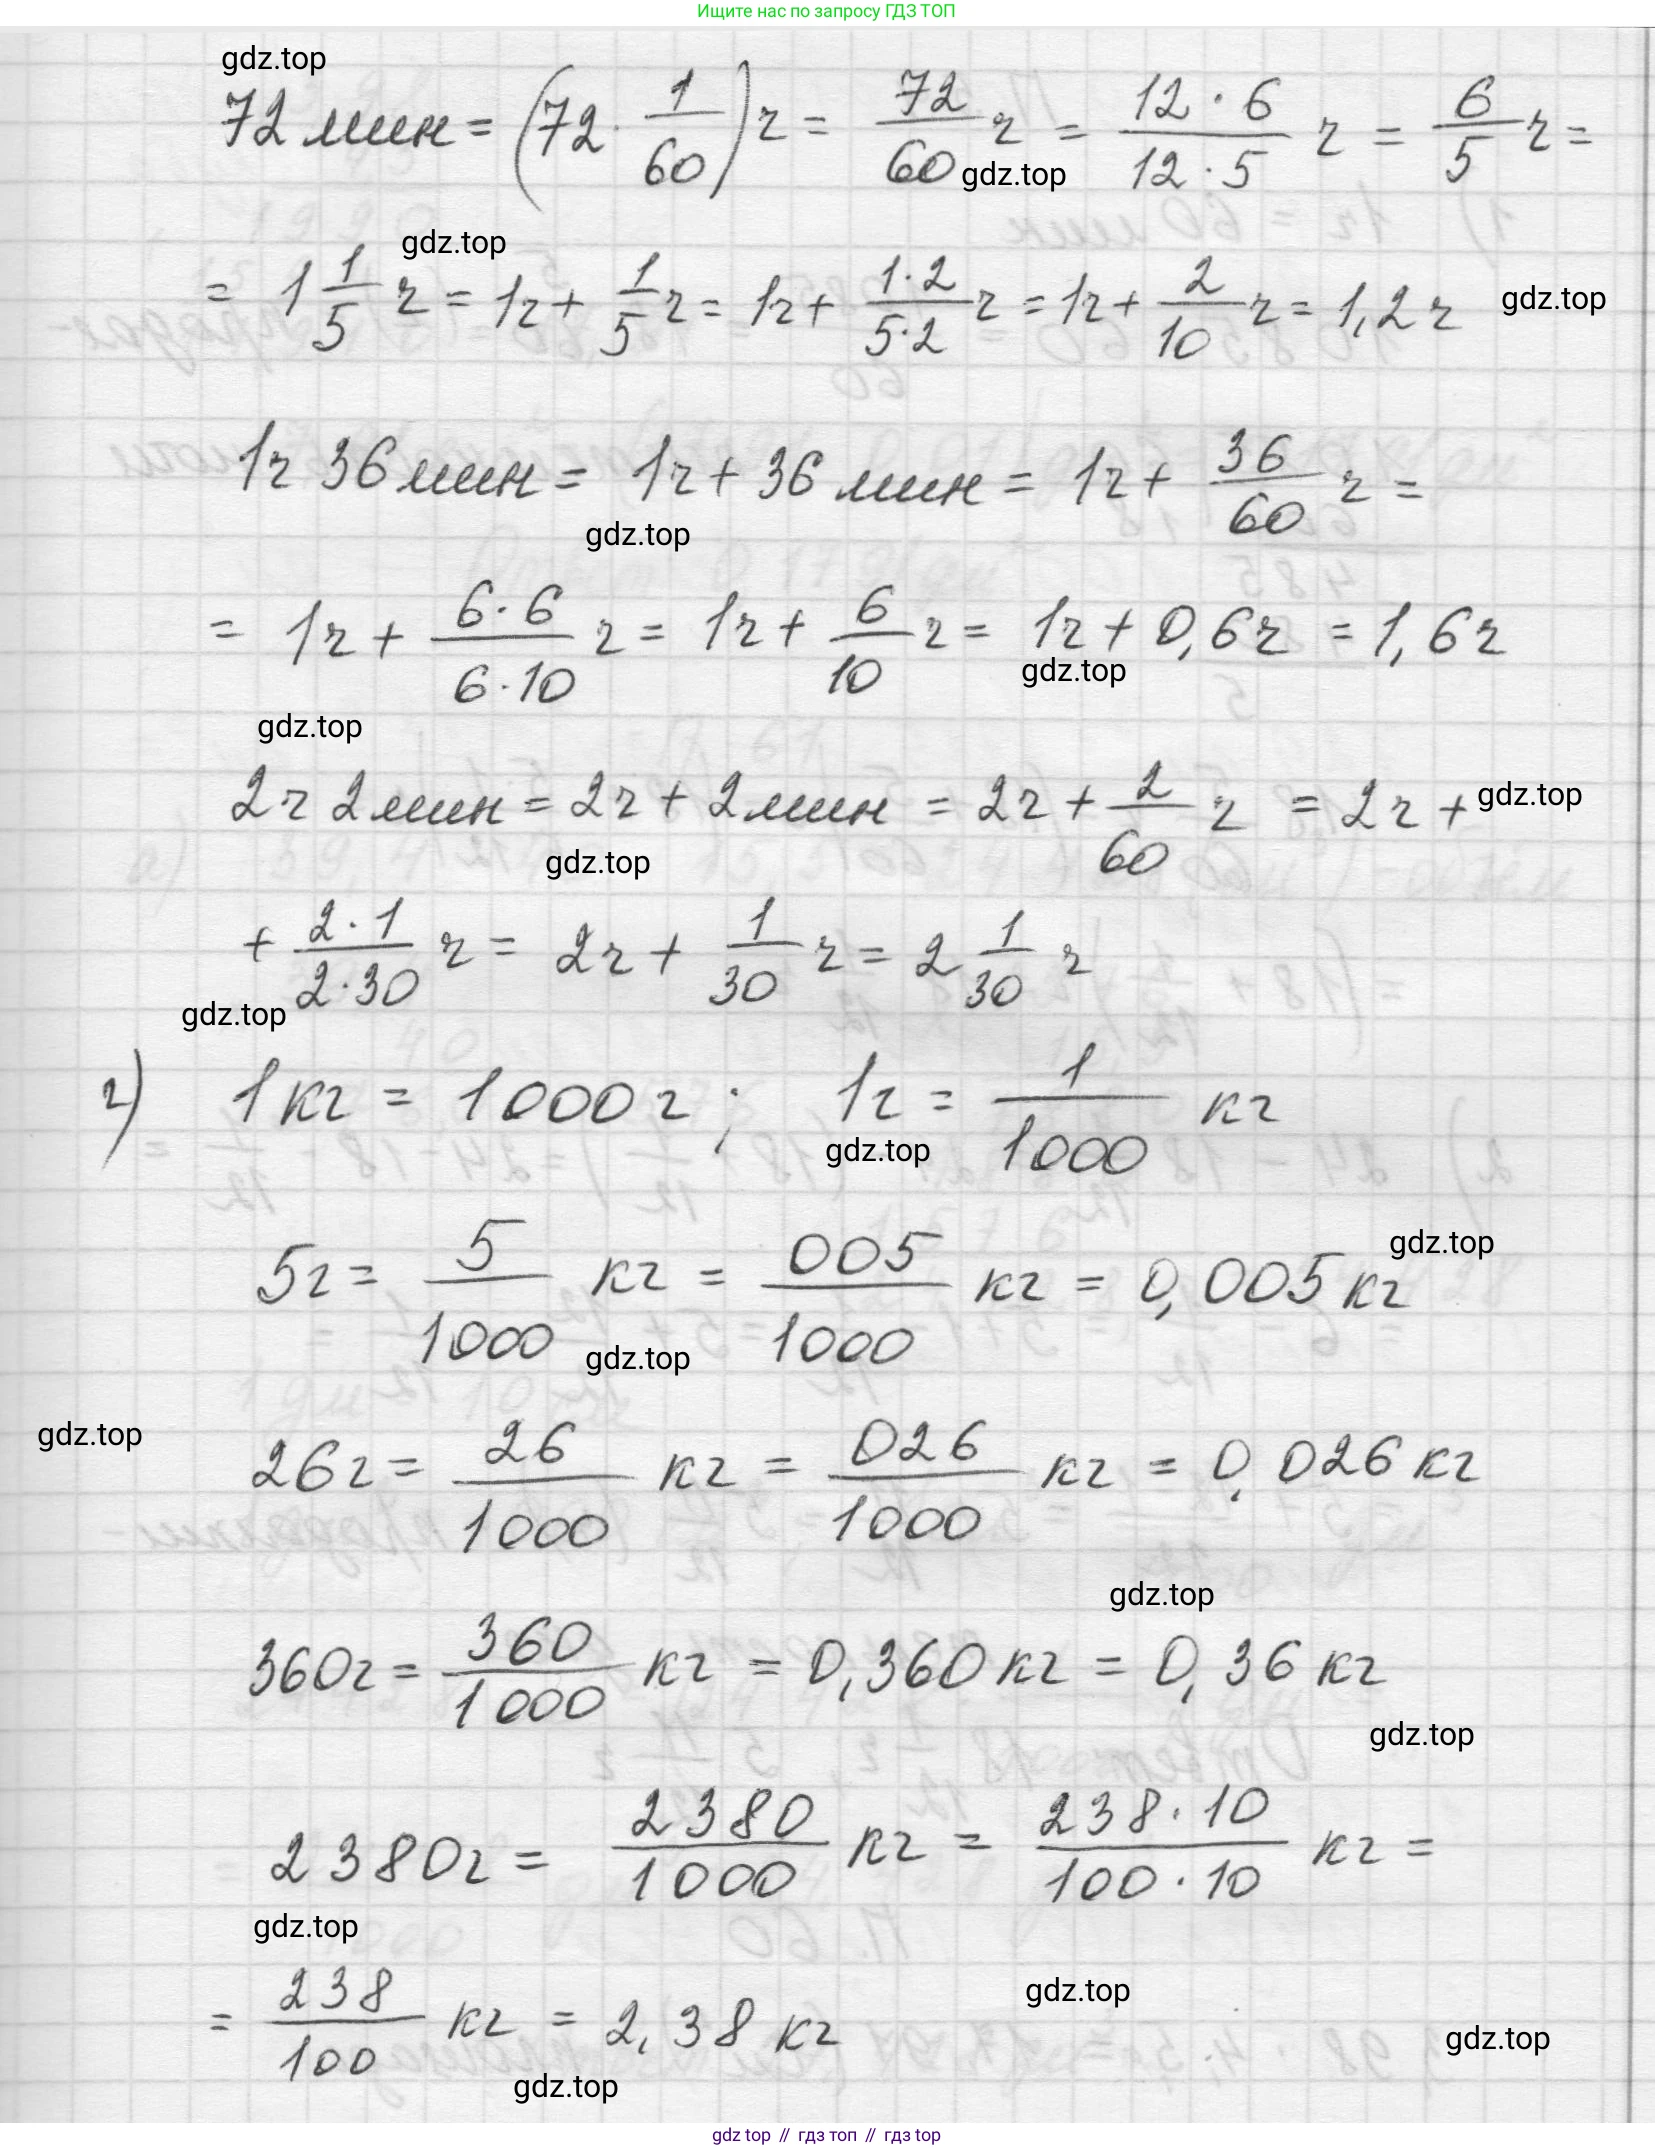 Ищите нас по запросу ГДЗ ТОП
gdz.top
72 мин = (72 · 1/60) ч = 72/60 ч = 12 · 6/12 · 5 ч = 6/5 ч =
gdz.top
gdz.top
= 1 1/5 ч = 1ч + 1/5 ч = 1ч + 1·2/5·2 ч = 1ч + 2/10 ч = 1,2 ч gdz.top
1ч 36 мин = 1ч + 36 мин = 1ч + 36/60 ч =
gdz.top
= 1ч + 6·6/6·10 ч = 1ч + 6/10 ч = 1ч + 0,6ч = 1,6ч
gdz.top
gdz.top
2ч 2мин = 2ч + 2мин = 2ч + 2/60 ч = 2ч + gdz.top
gdz.top
+ 2·1/2·30 ч = 2ч + 1/30 ч = 2 1/30 ч
gdz.top
г) 1кг = 1000г ; 1г = 1/1000 кг
gdz.top
gdz.top
5г = 5/1000 кг = 005/1000 кг = 0,005кг
gdz.top
gdz.top
26г = 26/1000 кг = 026/1000 кг = 0,026 кг
gdz.top
360г = 360/1000 кг = 0,360 кг = 0,36 кг
gdz.top
2380г = 2380/1000 кг = 238·10/100·10 кг =
gdz.top
gdz.top
= 238/100 кг = 2,38 кг
gdz.top
gdz.top
gdz top // гдз топ // гдз top